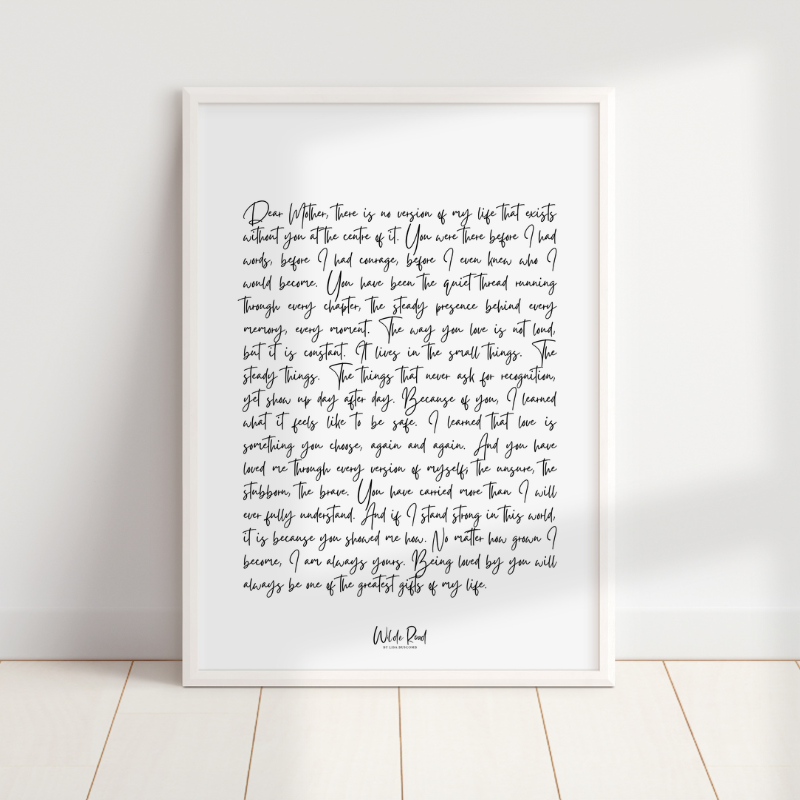 Dear Mother, there is no version of my life that exists
without you at the centre of it. You were there before I had
words, before I had courage, before I even knew who I
would become. You have been the quiet thread running
through every chapter, the steady presence behind every
memory, every moment. The way you love is not loud,
but it is constant. It lives in the small things. The
steady things. The things that never ask for recognition,
yet show up day after day. Because of you, I learned
what it feels like to be safe. I learned that love is
something you choose, again and again. And you have
loved me through every version of myself; the unsure, the
stubborn, the brave. You have carried more than I will
ever fully understand. And if I stand strong in this world,
it is because you showed me how. No matter how grown I
become, I am always yours. Being loved by you will
always be one of the greatest gifts of my life.
Wilde Road
BY LISA